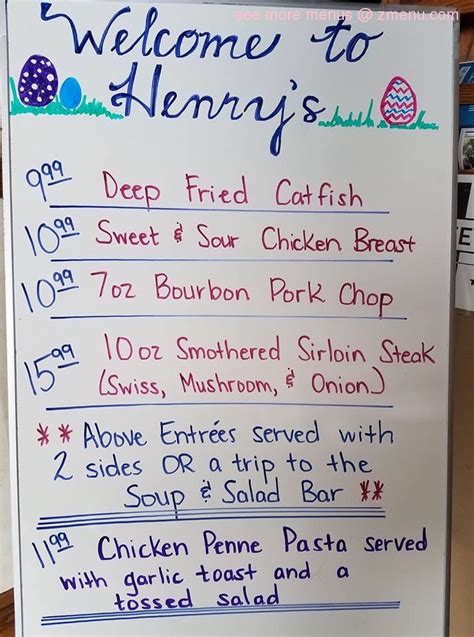 see more menus @ zmenu.com
Welcome to
Henry's
9.99 Deep Fried Catfish
10.99 Sweet & Sour Chicken Breast
10.99 7oz Bourbon Pork Chop
15.99 10 oz Smothered Sirloin Steak
(Swiss, Mushroom, & Onion)
** Above Entrées served with
2 sides OR a trip to the
Soup & Salad Bar **
11.99 Chicken Penne Pasta served
with garlic toast and a
tossed salad